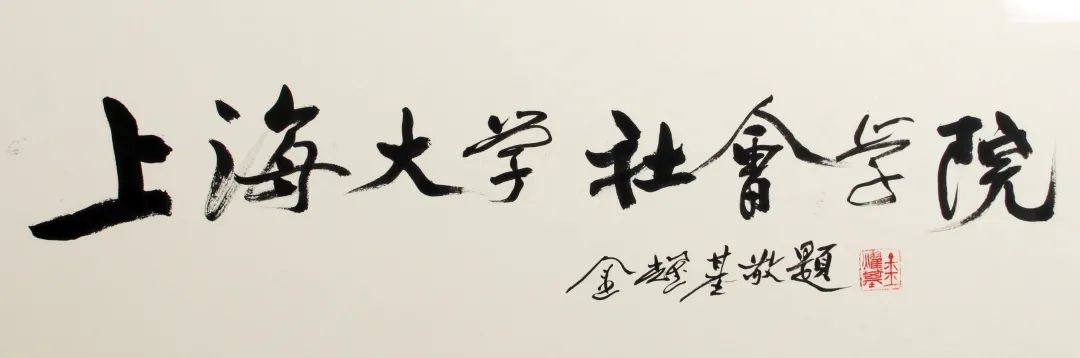 上海大学社會学院
金耀基敬題